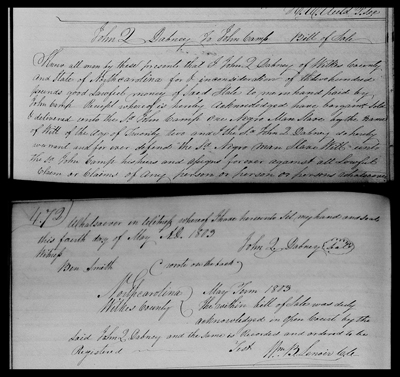 John Q Dabney To John Camp Bill of Sale
Know all men by these present that I John Q Dabney of Wilkes County
and State of Northcarolina for & inconsideration of three hundred
pounds good Lawfull money of Said State to me in hand paid by
John Camp Receipt whereof is hereby acknowledged have bargand Sold
& delivered unto the Sd John Camp One Negro Man Slave by the name
of Will of the age of Twenty two and I the Sd John Q Dabney do hereby
warrant and for ever defend the Sd Negro man Slave Will unto
the Sd John Camp his heirs and assigns forever against all lawfull
Claim or Claims of any person or person or persons
473)
Whatsoever in Witness whereof I have hereunto Set my hand and seale
this fourth day of May AD. 1803
John Q Dabney (Seal)
Witness
Ben Smith (wrote on the back)
Northcarolina May Term 1803
Wilkes County The within bill of Sale was duly
acknowledged in Open Court by the
Said John Q. Dabney and the same is Recorded and ordered to be
Registered Test Wm B Lenoir